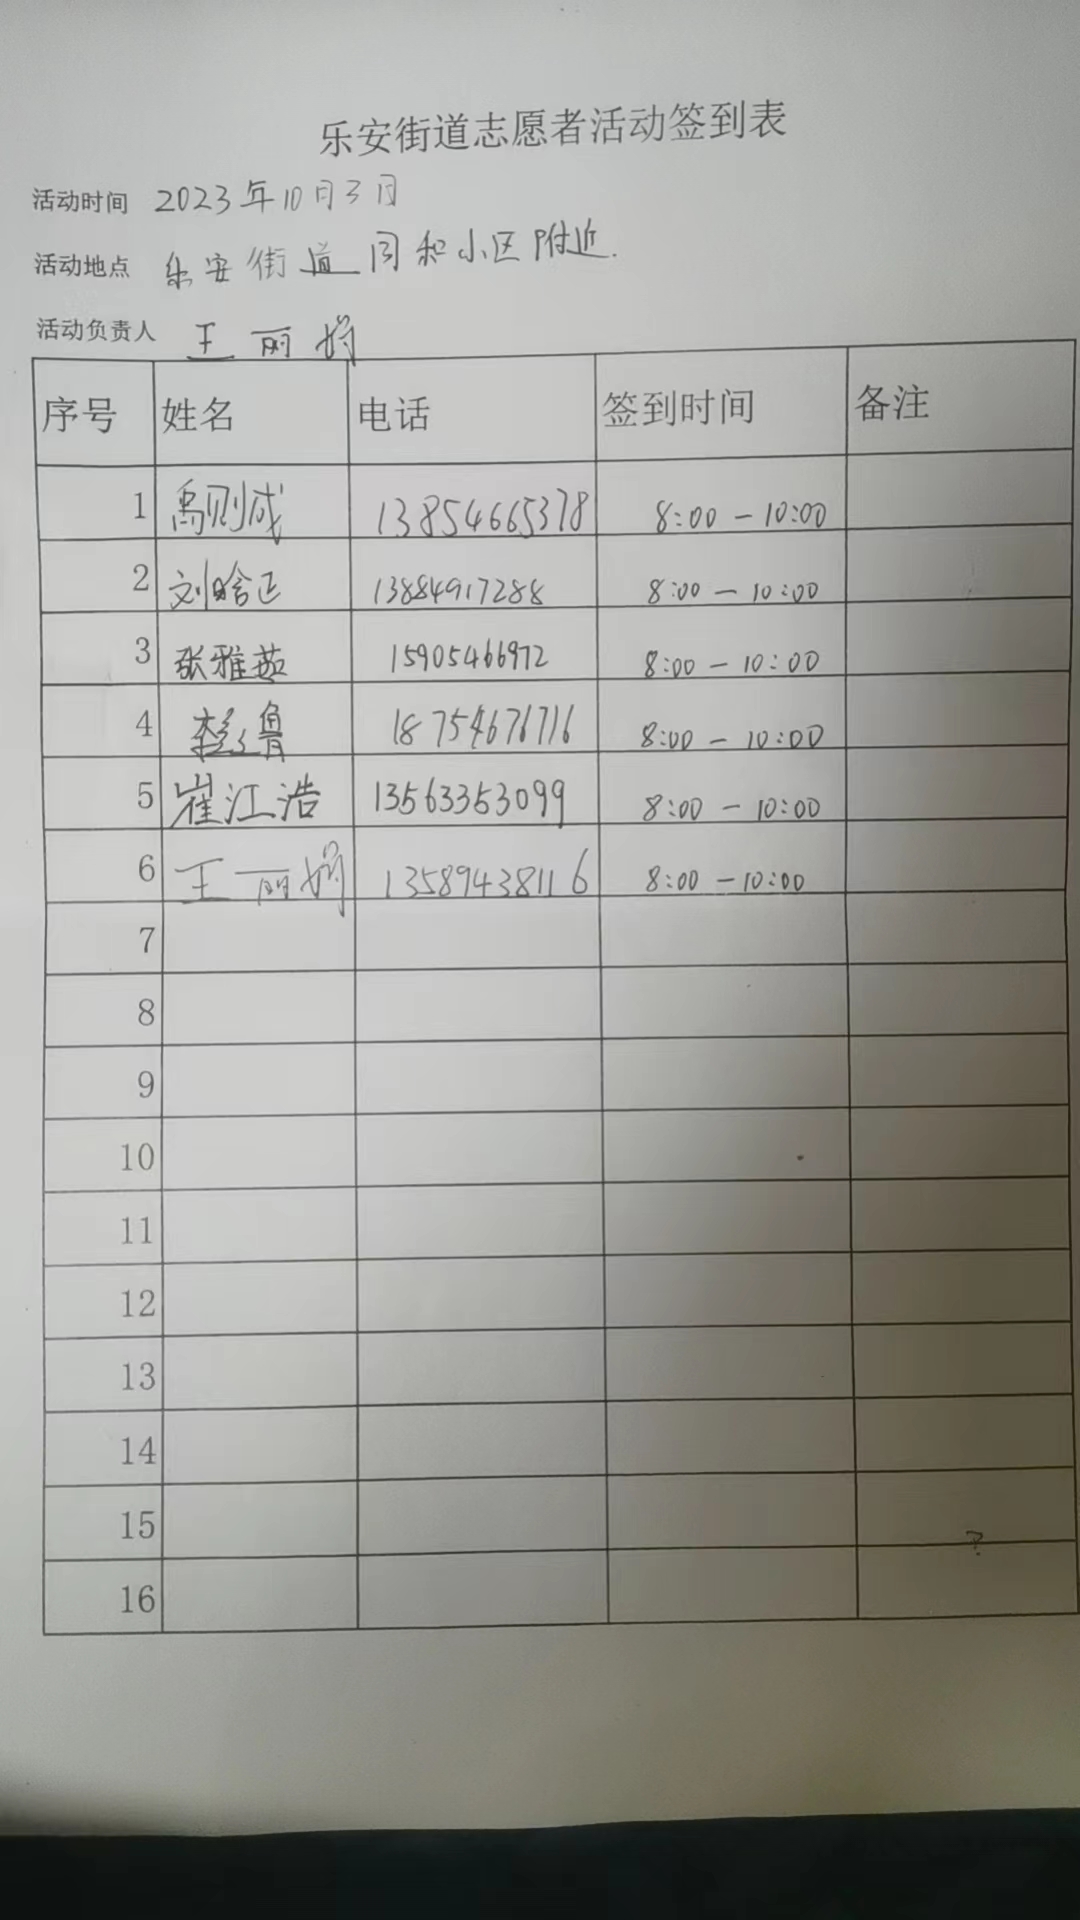 乐安街道志愿者活动签到表
活动时间 2023年10月3日
活动地点 乐安街道同和小区附近.
活动负责人 王丽娟
序号 姓名 电话 签到时间 备注
1 禹则成 13854665378 8:00-10:00
2 刘晗正 13884917288 8:00-10:00
3 张雅茹 15905466972 8:00-10:00
4 18754676716 8:00-10:00
5 崔江浩 13563353099 8:00-10:00
6 王丽娟 13589438116 8:00-10:00
7
8
9
10
11
12
13
14
15
?
16